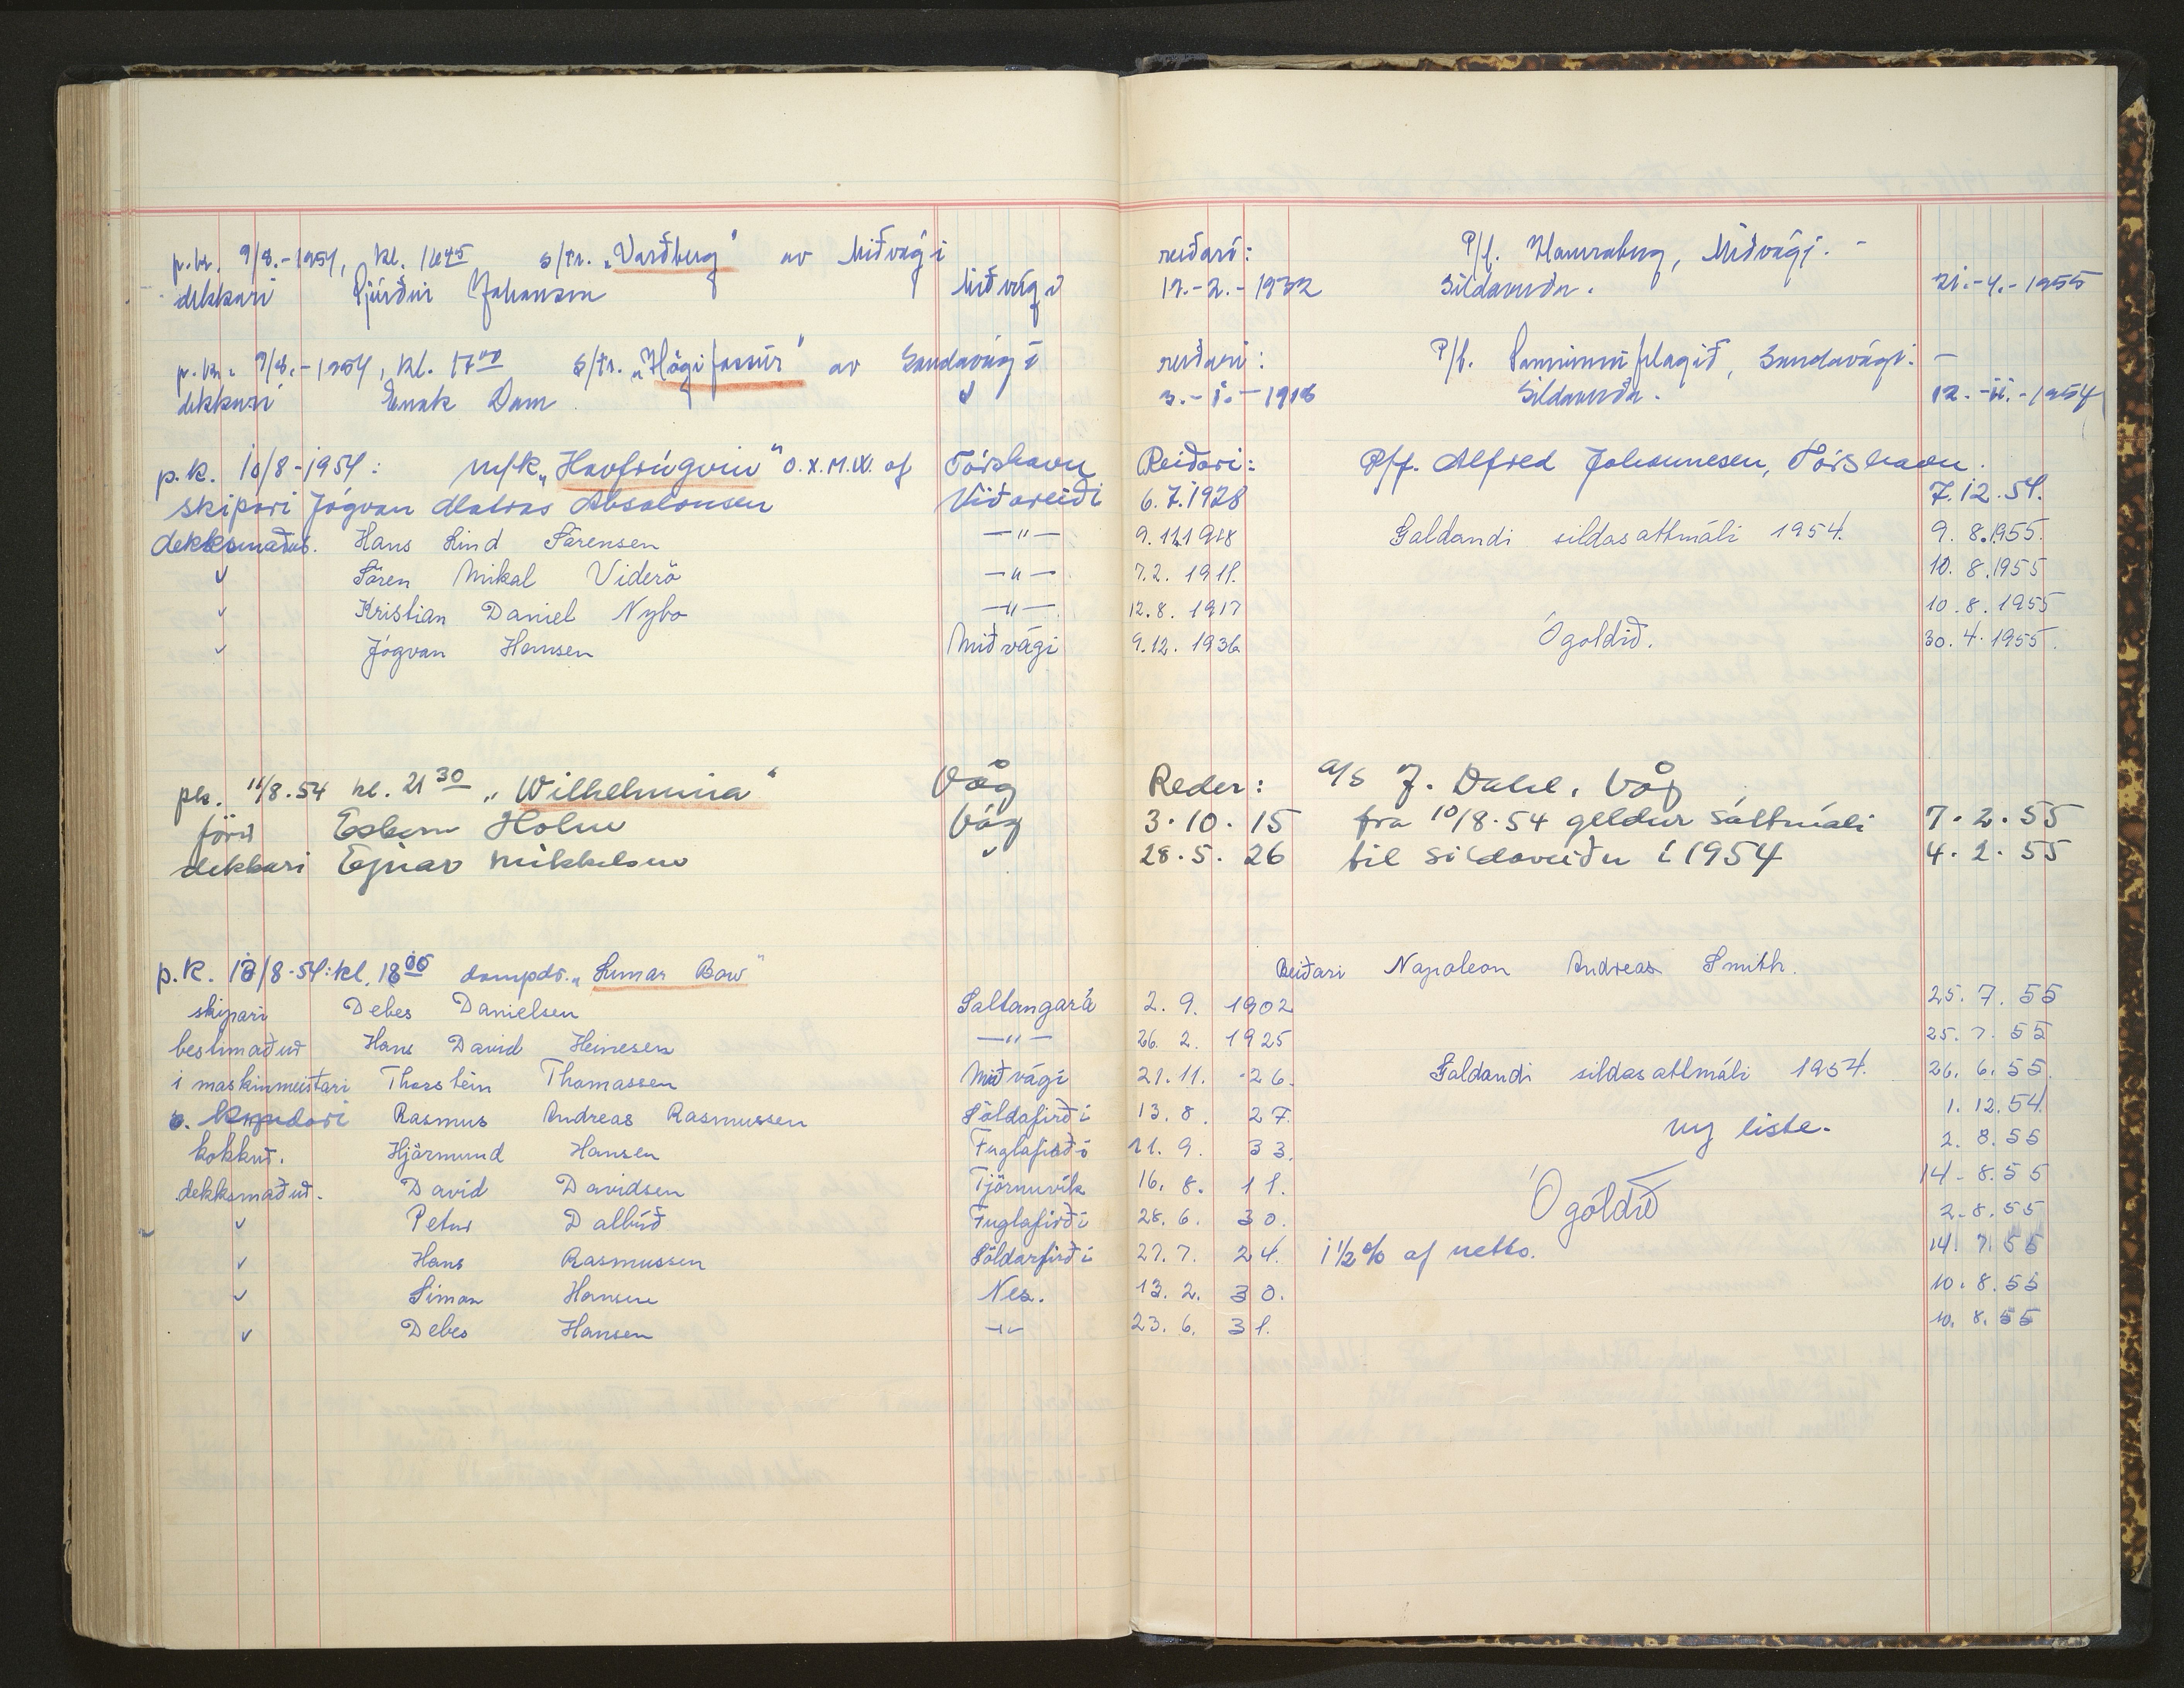 p.kr. 9/8.-1954, kl. 1645 s/tr. „Varðberg" av Miðvági reiðarí: P/f. Hamraberg, Miðvági. -
dekkari Sjúrður Johansen Miðvági 19.-2.-1932 Sildaveiðu. 21.-4.-1955
p.kr. 9/8.-1954, kl. 1700 s/tr. „Høgifossur" av Sandavági reiðarí: P/f. Sandavági. -
dekkari Enok Dam " 3.-1.-1916 Sildaveiðu. 12.-11.-1954
p.k. 10/8-1954: m/k „Havfrúgvin" O.X.M.W. af Tórshavn Reiðari: P/f. Alfred Johannesen, Tórshavn.
skipari Jógvan Matras Absalonsen Viðareiði 6.7.1928 7.12.54.
deksmaður. Hans Lind Sørensen —"— 9.11.1918 Galdandi sildasattmáli 1954. 9.8.1955.
" Sören Mikal Viderö —"— 7.2.1911. 10.8.1955
" Kristian Daniel Nybo —"— 12.8.1917 10.8.1955
" Jógvan Hansen Miðvági 9.12.1936 Ógoldið. 30.4.1955.
pk. 11/8.54 kl. 21 30 „Wilhelmina" Våg Reder: a/s J. Dahl, Våg
förd Esbern Holm Våg 3.10.15 fra 10/8.54 geldur sáttmáli 7.2.55
dekkari Ejnar Mikkelsen " 28.5.26 til sildaveiðu í 1954 4.2.55
p.k. 12/8-54: kl. 18 00 dampds. „Sumar Bow" Reiðari Napoleon Andreas Smith.
skipari Debes Danielsen Saltangará 2.9.1902 25.7.55
bestmaður Hans David Heinesen —"— 26.2.1925 25.7.55
i maskinmeistari Thorstein Thomassen Miðvági 21.11.-26. Galdandi sildasattmáli 1954. 26.6.55.
kyndari Rasmus Andreas Rasmussen Söldafirði 13.8.27. ny liste. 1.12.54.
kokkur. Hjörmund Hansen Fuglafirði 21.9.33. 2.8.55
dekksmaður. David Davidsen Tjörnuvík 16.8.11. Ógóldið 14-8.55
" Petur Dalbúð Fuglafirði 28.6.30. 2.8.55
" Hans Rasmussen Söldarfirði 27.7.24. i 1/2% af netto. 14.7.55
" Simon Hansen Nes. 13.2.30. 10.8.55
" Debes Hansen —"— 23.6.31. 10.8.55